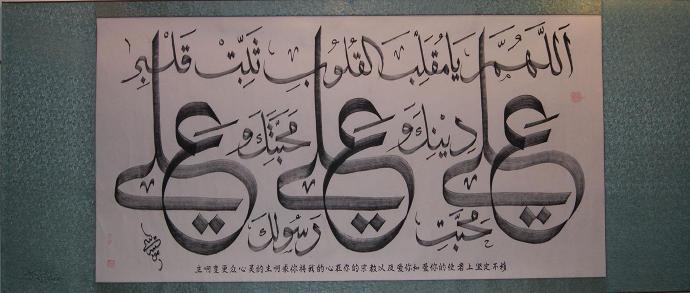 اَللّٰهُمَّ يَا مُقَلِّبَ القُلُوبِ ثَبِّتْ قَلْبِي
عَلَى دِينِكَ وَ عَلَى مَحَبَّتِكَ وَ عَلَى
مَحَبَّتِ رَسُولِكَ
主啊变更众心灵的主啊求你将我的心在你的宗教以及爱你和爱你的使者上坚定不移